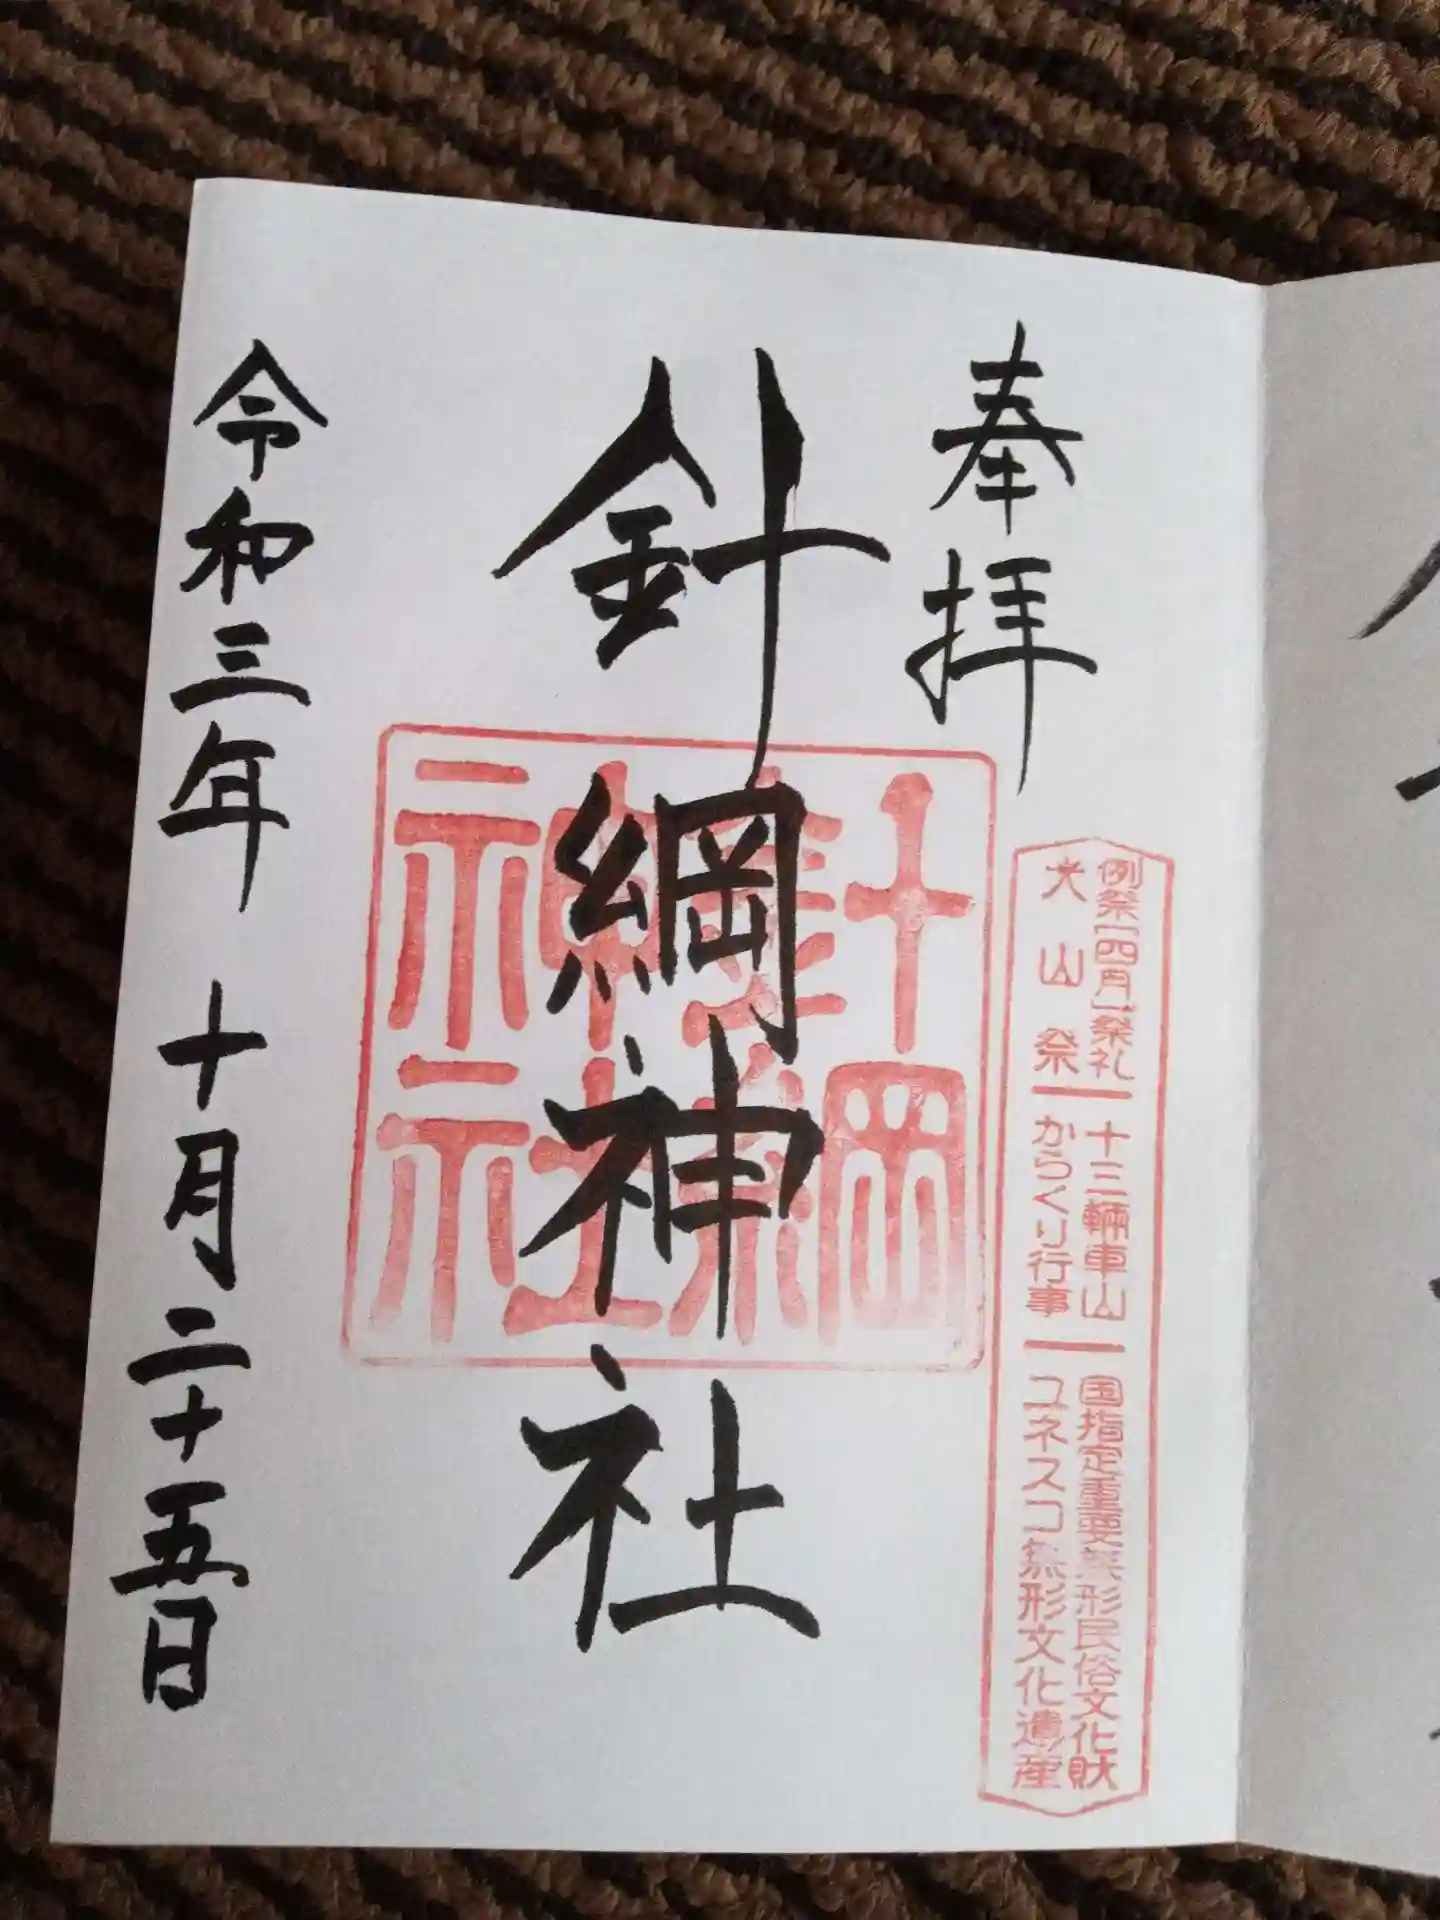 奉拝
例祭[四月]祭礼
犬山祭
十三輛車山
からくり行事
国指定重要無形民俗文化財
ユネスコ無形文化遺産
針綱神社
針綱
神社
令和三年 十月二十五日